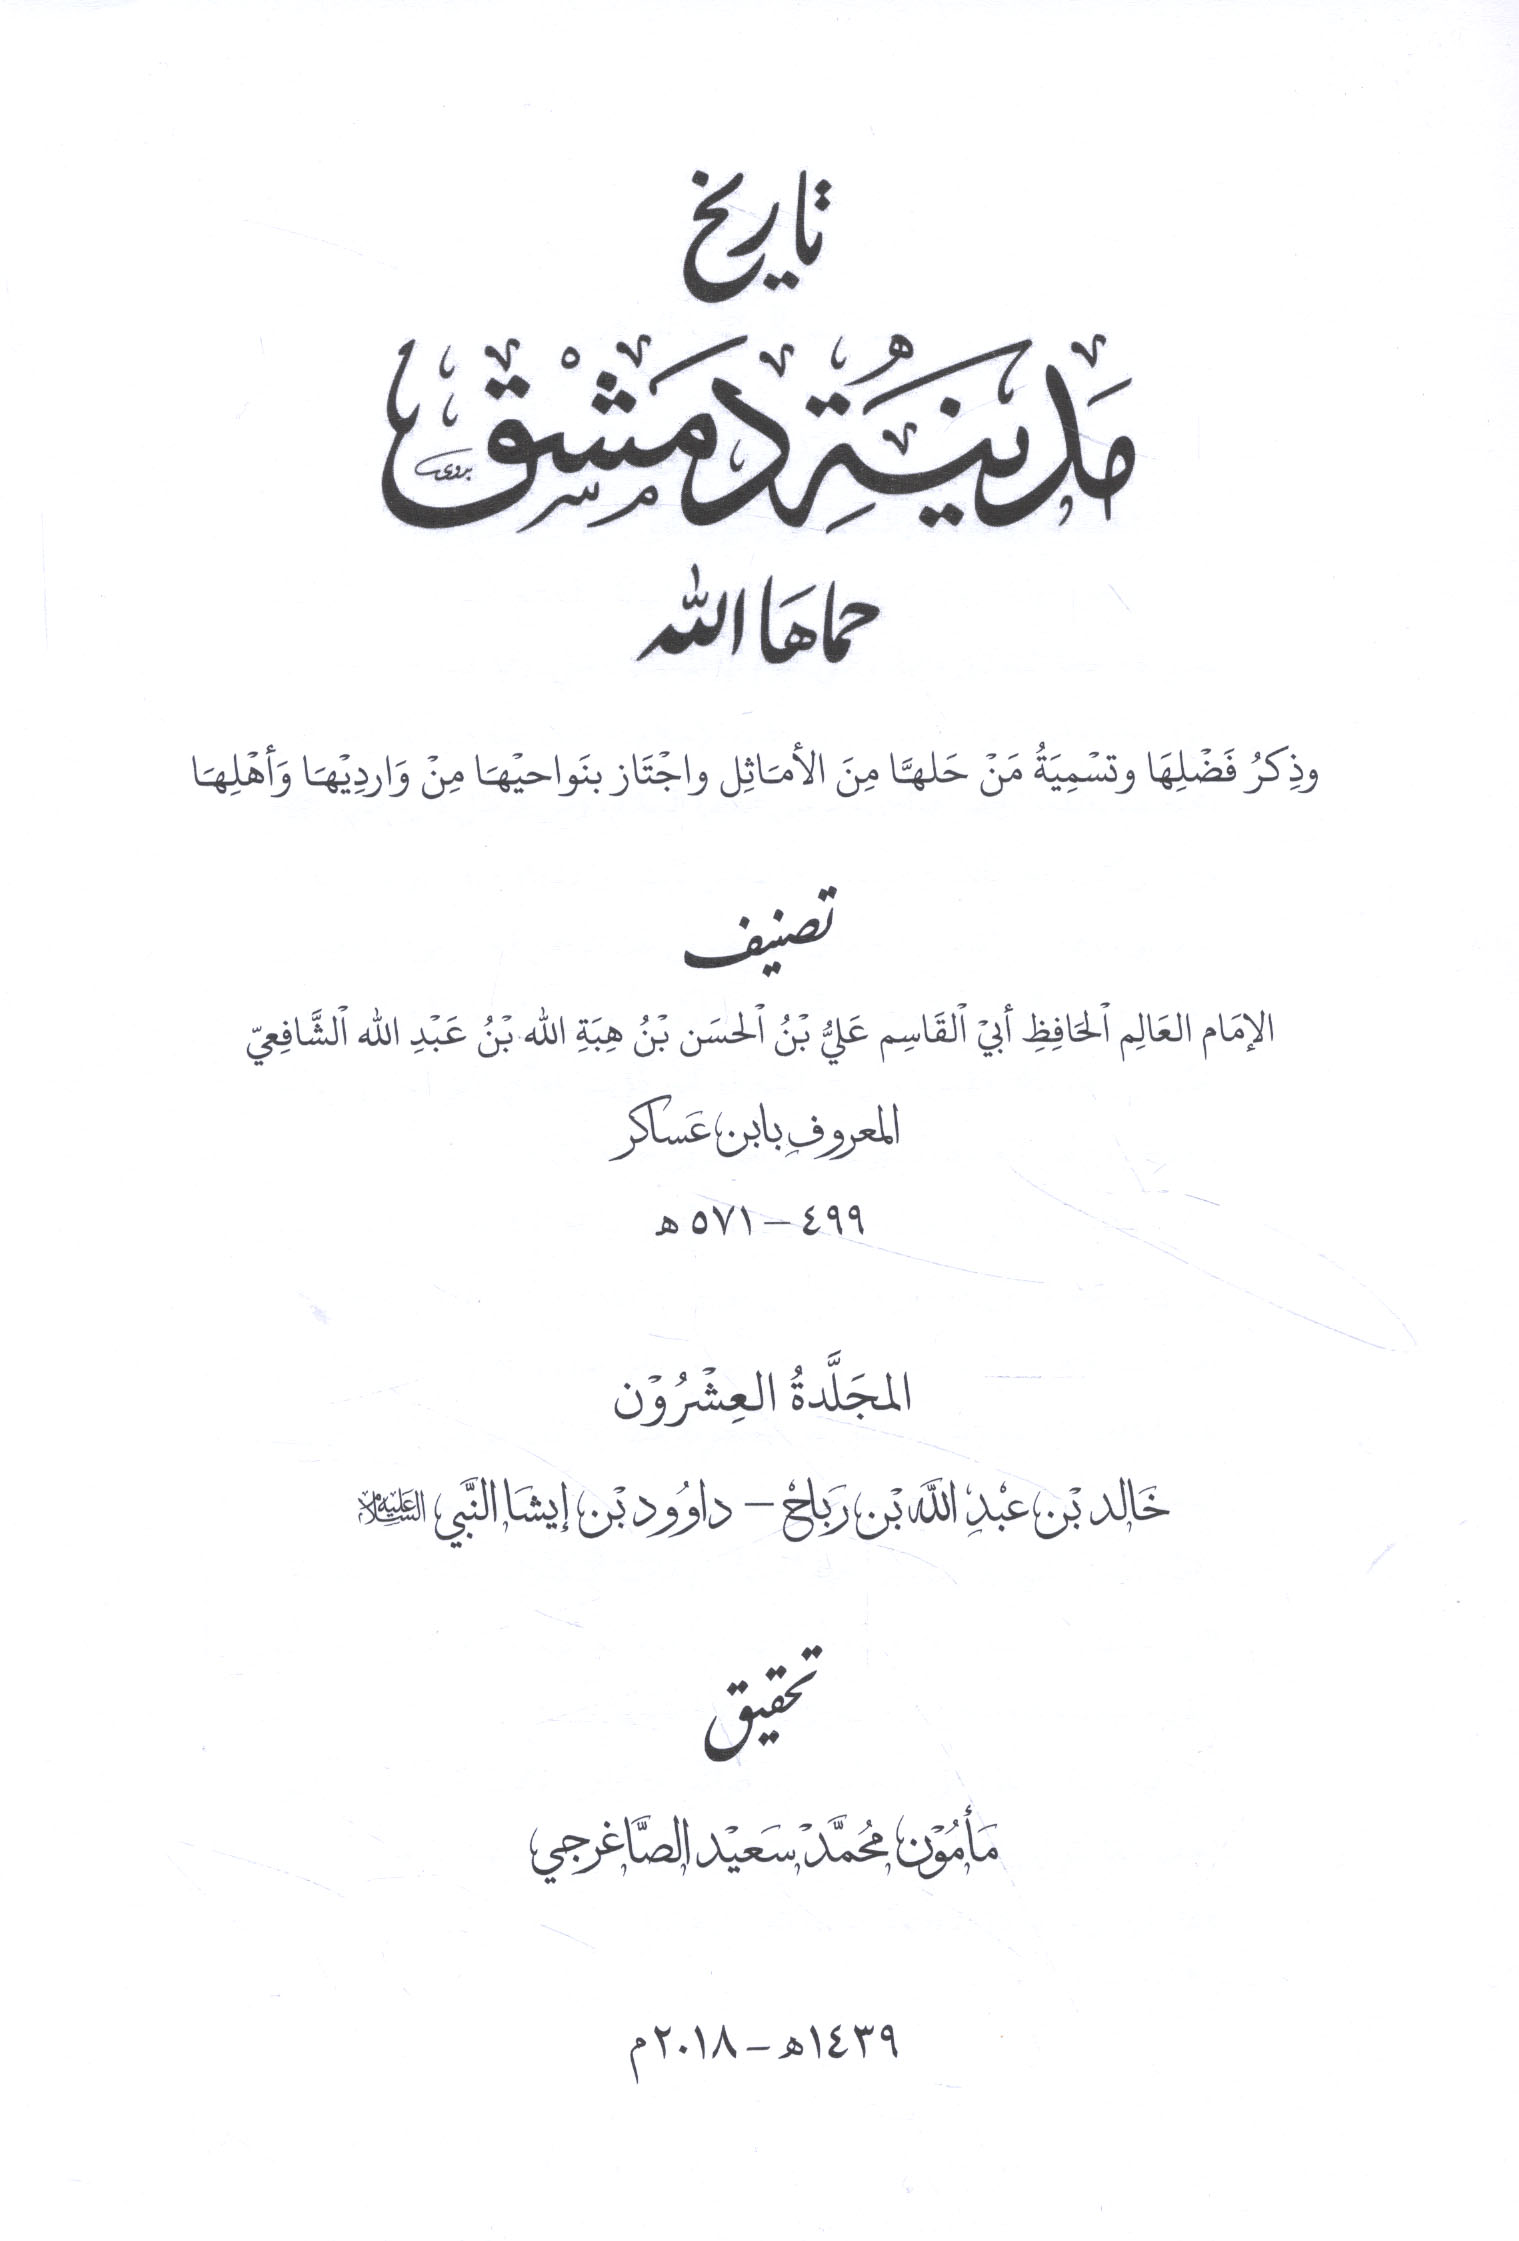 تاريخ
مَدينَةِ دمَشْق
بروى
حماهَا الله
وذِكرُ فَضْلِهَا وتسْمِيَةُ مَنْ حَلهَّا مِنَ الأمَاثِل واجْتَاز بنَواحيْهَا مِنْ وَاردِيْهَا وَأهْلِهَا
تصنيف
الإمَام العَالِم الْحَافِظِ أبيْ الْقَاسِم عَليُّ بْنُ الْحسَن بْنُ هِبَةِ الله بْنُ عَبْدِ الله الْشَّافِعيّ
المعروفِ بابن عَساكر
٤٩٩ – ٥٧١ ه
المجَلَّدةُ العِشْرُوْن
خَالد بْن عبْدِ اللَّه بْن رَبَاحْ – داوُود بْن إيشَا النَّبي عَلَيْهِ السَّلَام
تحقيق
مَأمُوْن مُحمَّدْ سَعيْد الصَّاغرجي
١٤٣٩ه – ٢٠١٨م